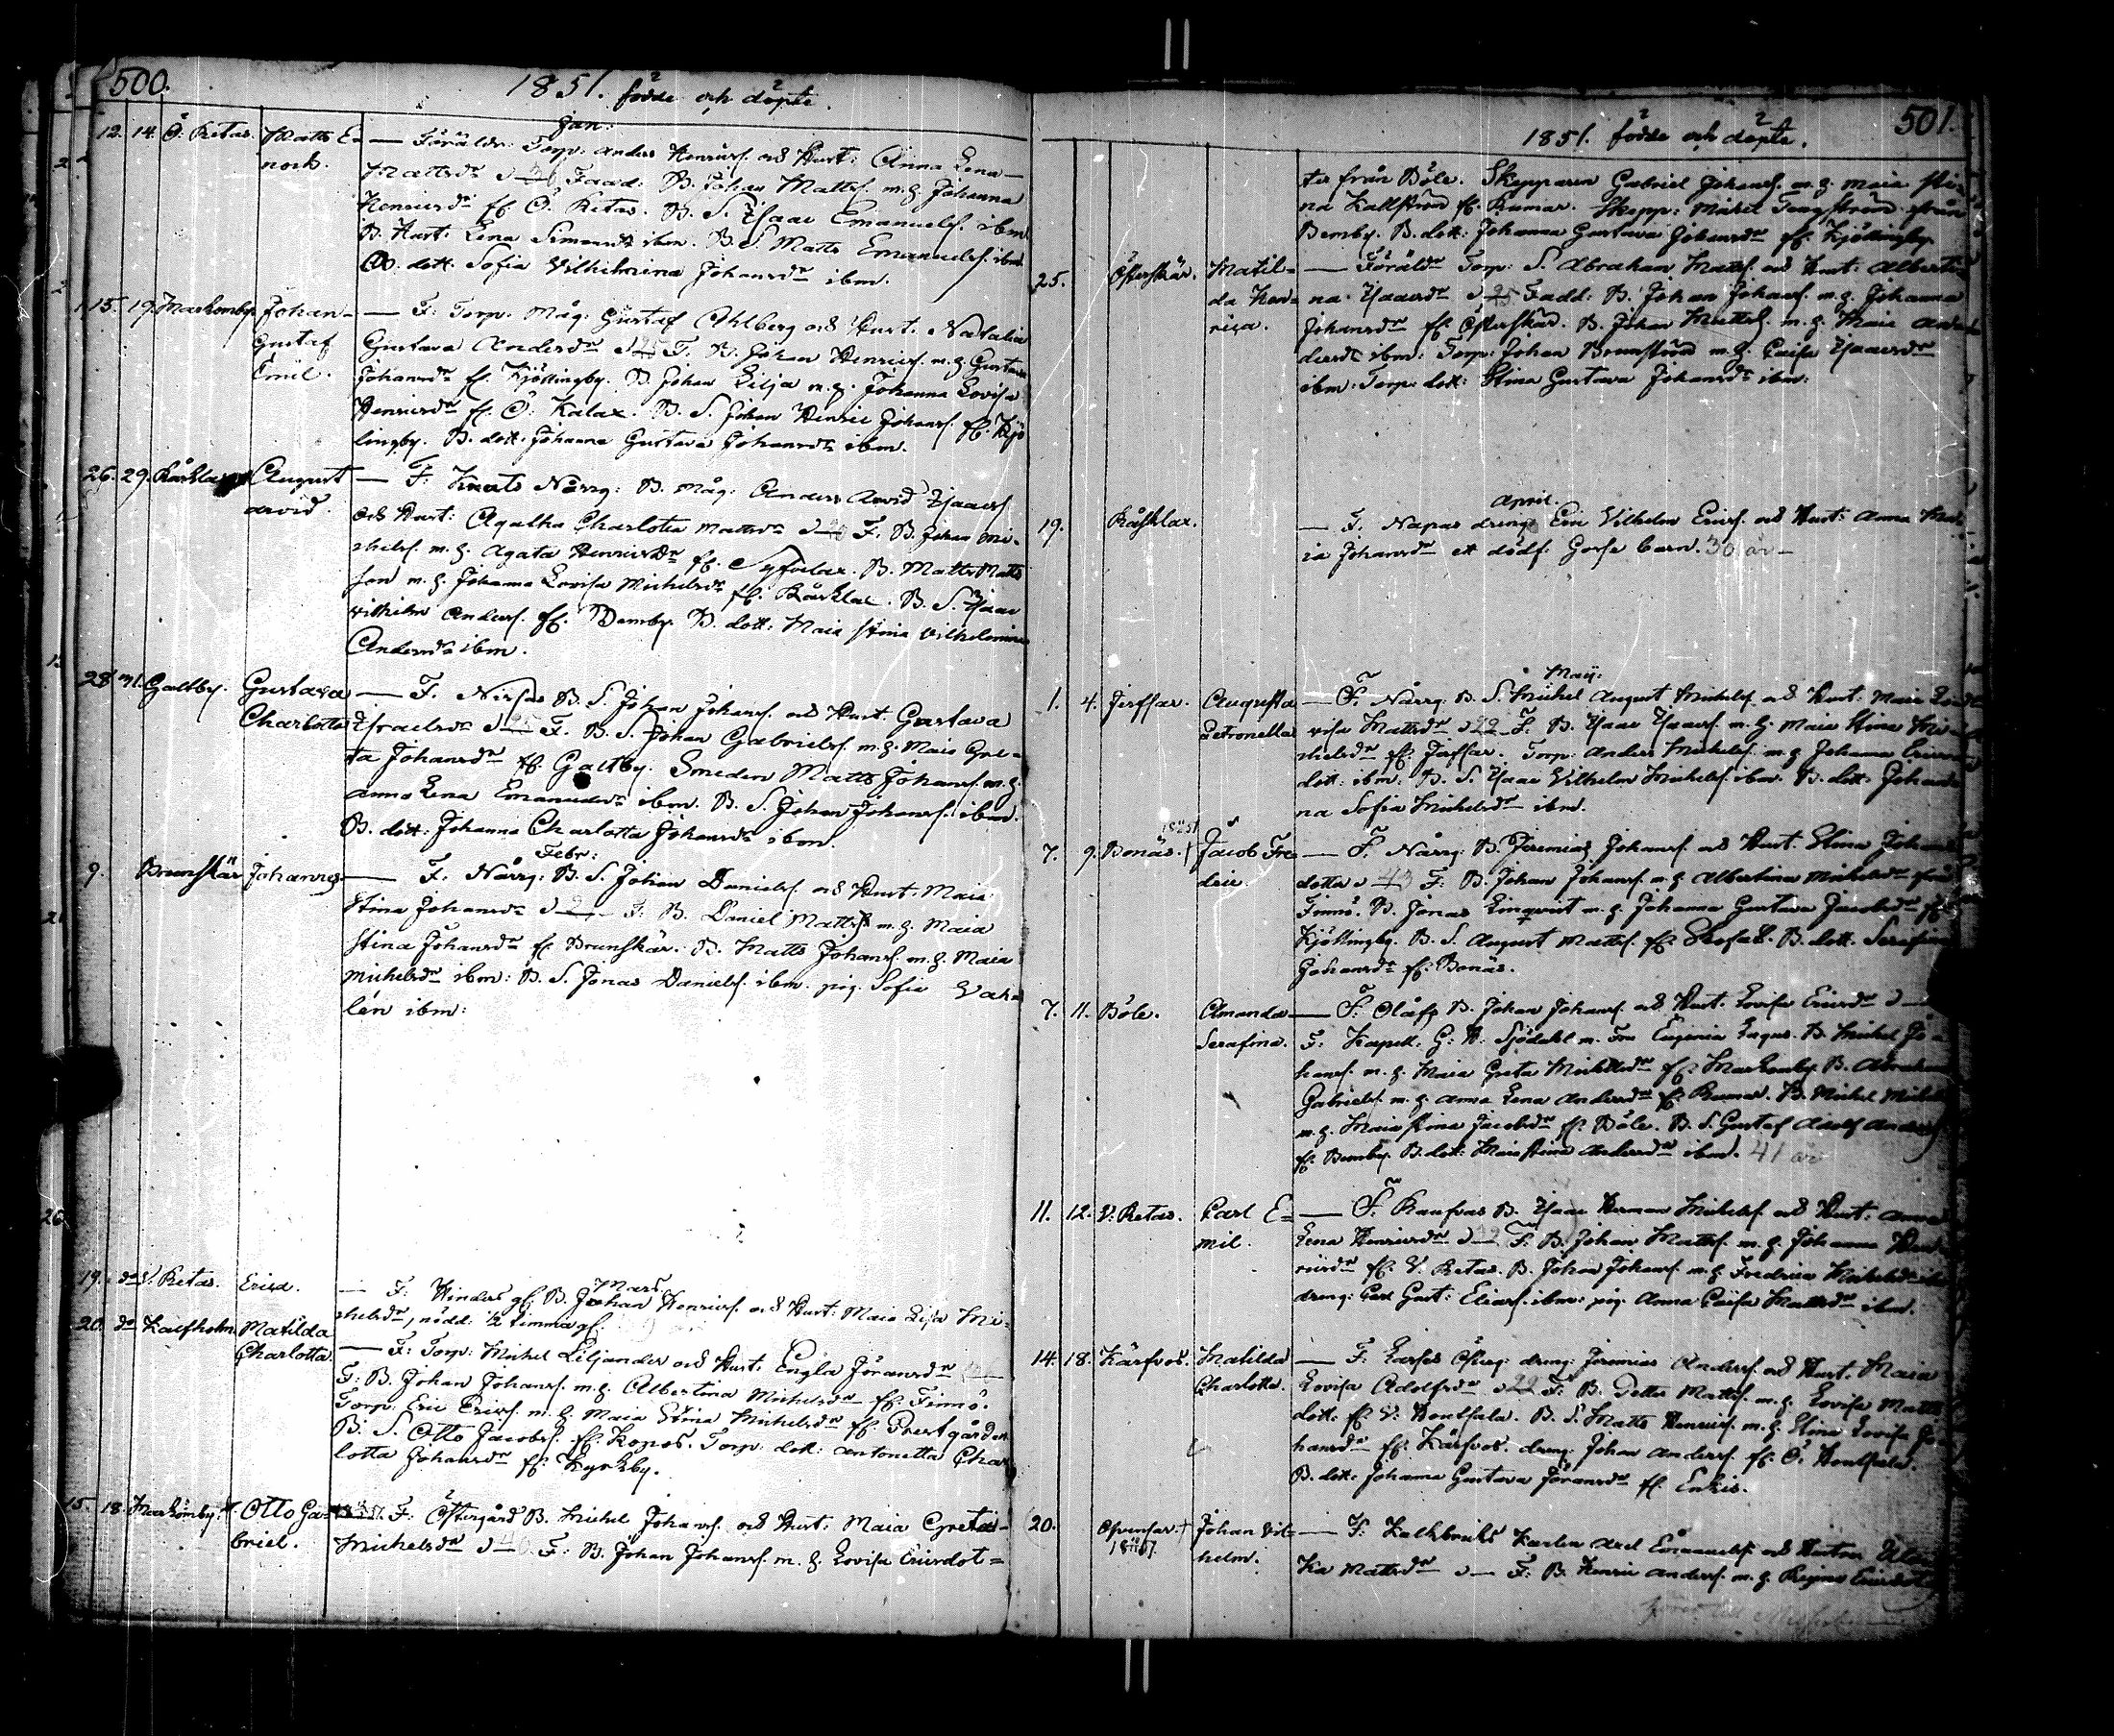 500.
1851. födde och döpte.
Jan:
12. 14. Ö. Retas. Matts E=
nock.
— Föräldr: Torp: Anders Henricss. och Hust: Anna Lena
Mattsdr Fadd: B. Johan Mattss. m. h. Johanna
Henricsdr fr. Ö. Retas. B. S. Isaac Emanuelss. ibm
B. Hust: Lena Simonsdr ibm. B. S. Matts Emanuelss. ibm
B. dott. Sofia Vilhelmina Johansdr ibm.
15. 19. Markomby Johan
Gustaf
Emil.
— F. Torp. Måg: Gustaf Ahlberg och Hust. Natalia
Gustava Andersdr 25 F. B. Johan Henricss. m. h. Gustava
Johansdr fr. Kjöttingby. B. Johan Lilja m. h. Johanna Lovisa
Henricsdr fr. Ö. Kalax. B. S. Johan Henric Johanss. fr. Kjö
lingby. B. dott. Johanna Gustava Johansdr ibm.
26. 29. Kårklax August
Arvid.
— F. Knuts Nårrg: B. Måg: Anders Arvid Isaacss.
och Hust: Agatha Charlotta Mattsdr F. B. Johan Mi=
chelss. m. h. Agata Henricsdr fr. B. Matts Matts
son m. h. Johanna Lovisa Michelsdr fr. Kårklax. B. S. Isaac
Vilhelm Anderss. fr. Bemby. B. dott: Maia Stina Vilhelmina
Andersdr ibm.
28 31. Galtby. Gustava
Charlotta
— F. B. S. Johan Johanss. och Hust. Gustava
Israelsdr 25 F. B. S. Johan Gabrielss. m. h. Maia Gre=
ta Johansdr fr. Galtby. Smeden Matts Johanss. m. h.
Anna Lena Emanuelsdr ibm. B. S. Johan Johanss. ibm.
B. dott: Johanna Charlotta Johansdr ibm.
Febr:
9. Brunskär Johannes
— F. Nårrg: B. S. Johan Danielss. och Hust. Maia
Stina Johansdr F. B. Daniel Mattss. m. h. Maia
Stina Johansdr fr. Brunskär. B. Matts Johanss. m. h. Maia
Michelsdr ibm: B. S. Jonas Danielss. ibm. pig. Sofia
lén ibm:
Mars
19. do V. Retas. Erica.
— F. Hinders gl. B. Johan Henricss. och Hust: Maia Lisa Mi=
chelsdr, nödd: ½ timma gl.
20. do Kalfholm Matilda
Charlotta.
— F. Torp: Michel Liljander och Hust. Engla Göransdr
F: B. Johan Johanss. m. h. Albertina Michelsdr fr. Finnö.
Torp: Eric Ericss. m. h. Maia Stina Michelsdr fr. Prestgården
B. S. Otto Jacobss. fr. Kopos. Torp: dott: Antonetta Char
lotta Johansdr fr. Kyrkby.
15. 18. Markomby. Otto Ga=
briel.
F. Östergård B. Michel Johanss. och Hust: Maia Greta
Michelsdr 40 F: B. Johan Johanss. m. h. Lovisa Ericsdot=
501.
1851. födde och döpte.
ter från Böle. Skepparen Gabriel Johanss. m. h. Maia Sti=
na Kallström fr. Rumar. Skepp: Michel Tengström från
Bemby. B. dott: Johanna Gustava Johansdr fr. Kjöttingby.
25. Österskär. Matil=
da Hen=
rica.
— Föräldr Torp: S. Abraham Mattss. och Hust: Alberti=
na Isaacsdr 25 Fadd: B. Johan Johanss. m. h. Johanna
Johansdr fr. Österskär. B. Johan Mattss. m. h. Maia An=
dersdr ibm: Torp: Johan Brunström m. h. Caisa Isaacsdr
ibm: Torp: dott: Stina Gustava Johansdr ibm:
April.
19. Kårklax.
— F. Napas dreng: Eric Vilhelm Ericss. och Hust: Anna Ma=
ia Johansdr ett dödf: Gosse barn. 30 år —
Maij:
1. 4. Augusta
Petronella
— F. Nårrg. B. S. Michel August Michelss. och Hust. Maia Lo=
visa Mattsdr 22 F. B. Isaac Isaacss. m. h. Maia Stina Mi=
chelsdr fr. Torp: Anders Michelss. m. h. Johanna Erics
dott: ibm: B. S. Isaac Vilhelm Michelss. ibm. B. dott: Johan
na Sofia Michelsdr ibm.
7. 9. Bonäs. Jacob Fre=
dric.
— F. Nårrg: B. Jeremias Johanss. och Hust. Stina Johans
dotter 43 F: B. Johan Johanss. m. h. Albertina Michelsdr från
Finnö. B. Jonas Linqvist m. h. Johanna Gustava Jacobsdr fr.
Kjöttingby. B. S. August Mattss. fr. B. dott: Serafina
Johansdr fr. Bonäs.
7. 11. Böle. Amanda
Serafina.
— F. Olofs B. Johan Johanss. och Hust. Lovisa Ericsdr
F: Kapell. G. A. Sjödahl m. Fru Eugenia B. Michel Jo=
hanss. m. h. Maia Greta Michelsdr fr. Markomby. B. Abraham
Gabrielss. m. h. Anna Lena Andersdr fr. Rumar. B. Michel Michelss.
m. h. Maia Stina Jacobsdr fr. Böle. B. S. Gustaf Adolf Anderss.
fr. Bemby. B. dott: Maia Stina Andersdr ibm. 41 år
11. 12. V. Retas. Carl E=
mil.
— F. Raufvas B. Isaac Herman Michelss. och Hust: Anna
Lena Henricsdr F: B. Johan Mattss. m. h. Johanna Hen=
ricsdr fr. V. Retas. B. Johan Johanss. m. h. Fredrica Michelsdr ibm
dreng: Carl Gust: Eliass. ibm: pig. Anna Caisa Mattsdr ibm.
14. 18. Kärfvos. Matilda
Charlotta.
— F. Larses Österg: dreng: Jeremias Anderss. och Hust. Maia
Lovisa Adolfsdr 22 F. B. Petter Mattss. m. h. Lovisa Matts
dott: fr. V. Hontsala. B. S. Matts Henricss. m. h. Stina Lovisa Jo=
hansdr fr. Kärfvos. dreng: Johan Anderss. fr. Ö. Hontsala.
B. dott: Johanna Gustava Göransdr fr. Enkis.
20. Ospensar. Johan Vil=
helm.
— F. Kalkbruks Karlen Axel Emanuelss. och Hustrun Ulri
ka Mattsdr F: B. Henric Anderss. m. h. Regina Ericsdott